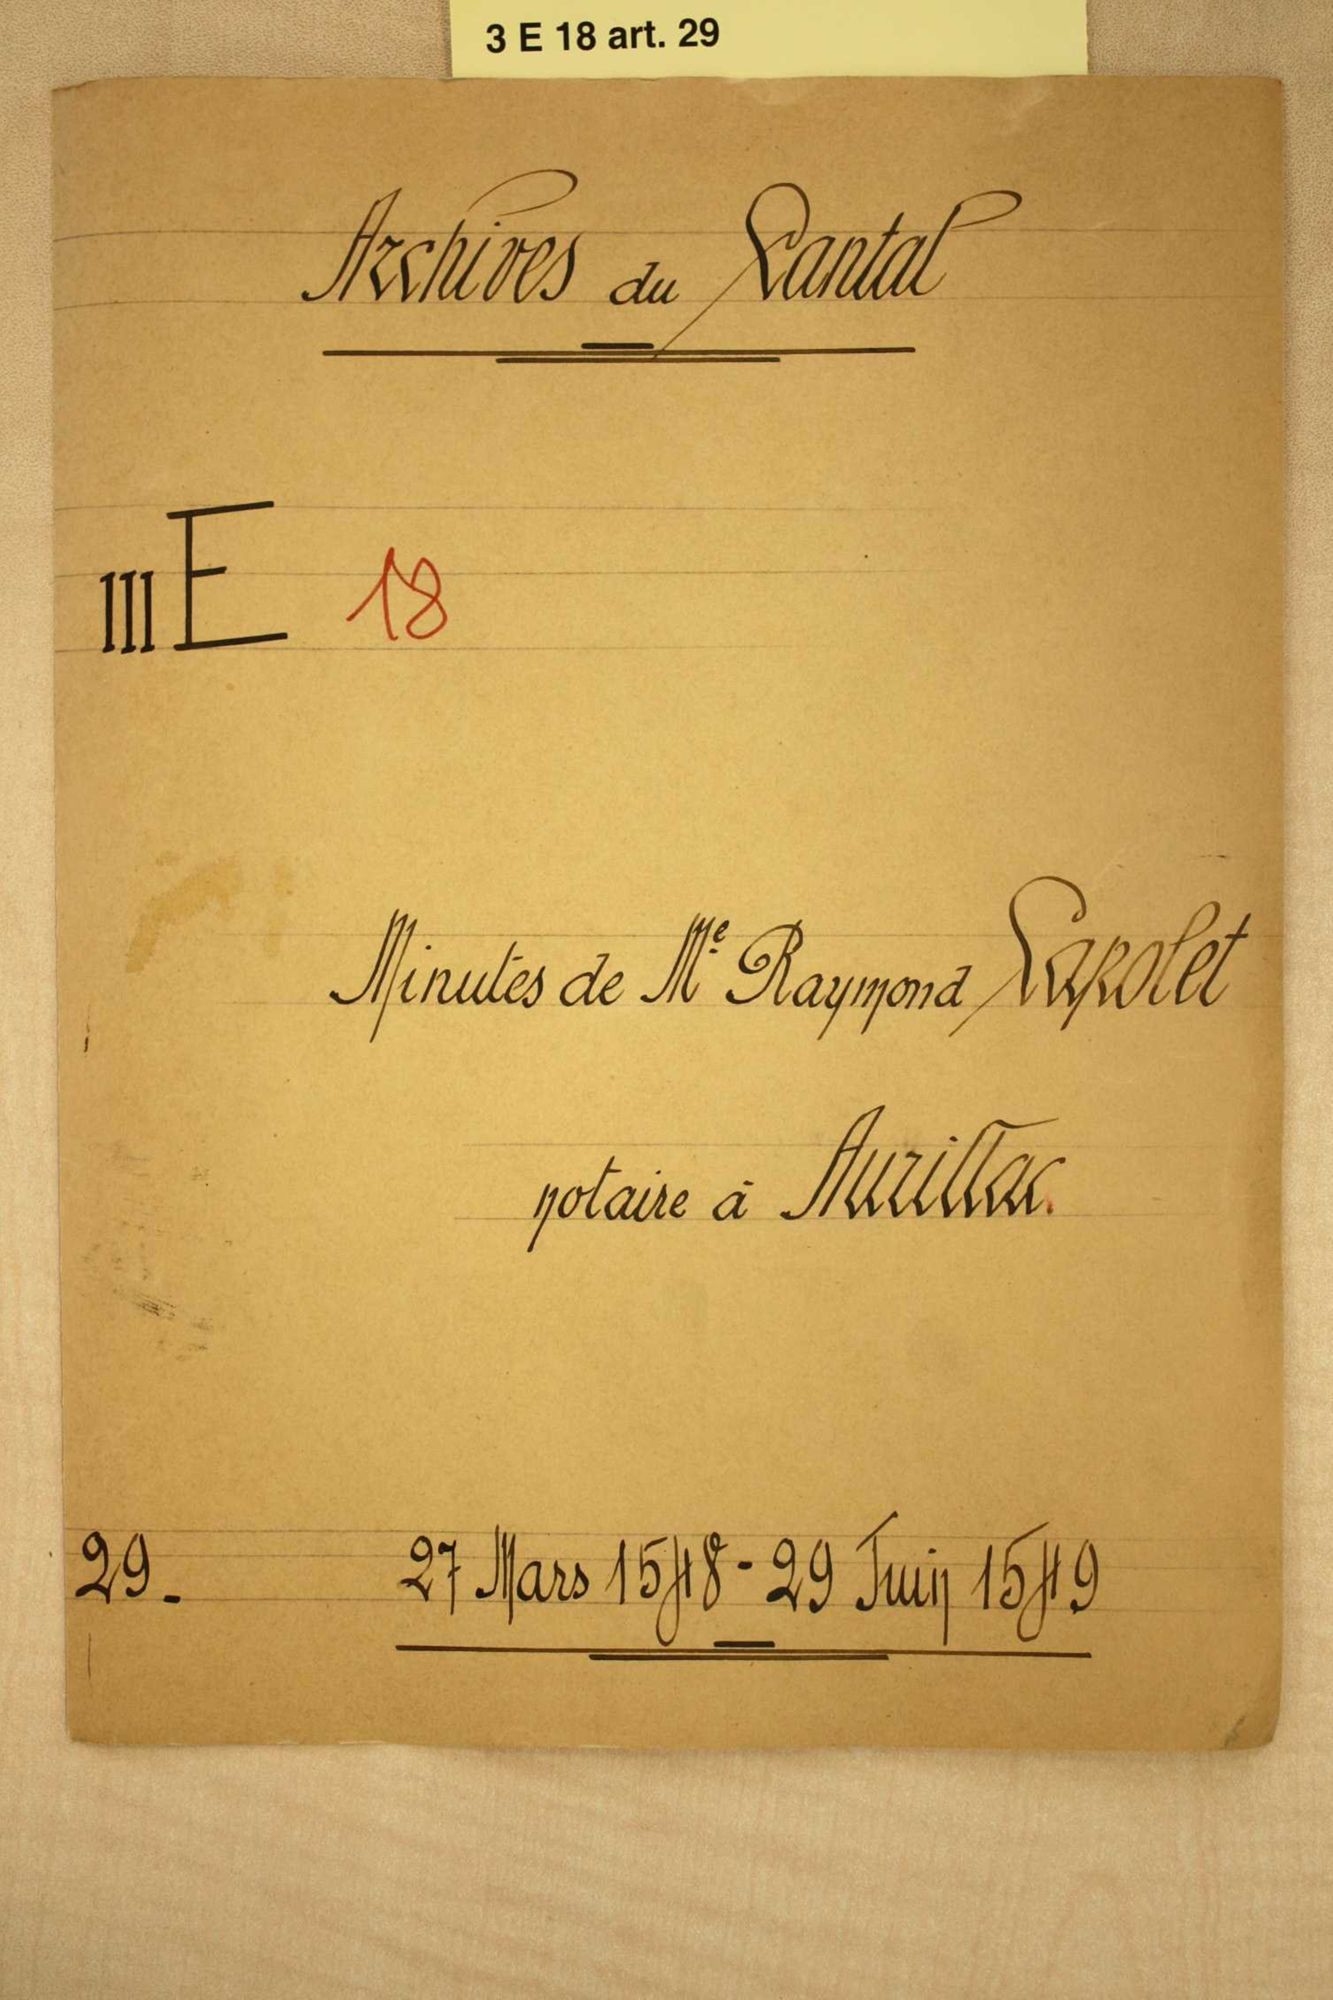 3 E 18 art. 29
Archives du Cantal
III E 18
Minutes de Me Raymond Capolet
notaire à Aurillac.
29_ 27 Mars 1548 - 29 Juin 1549